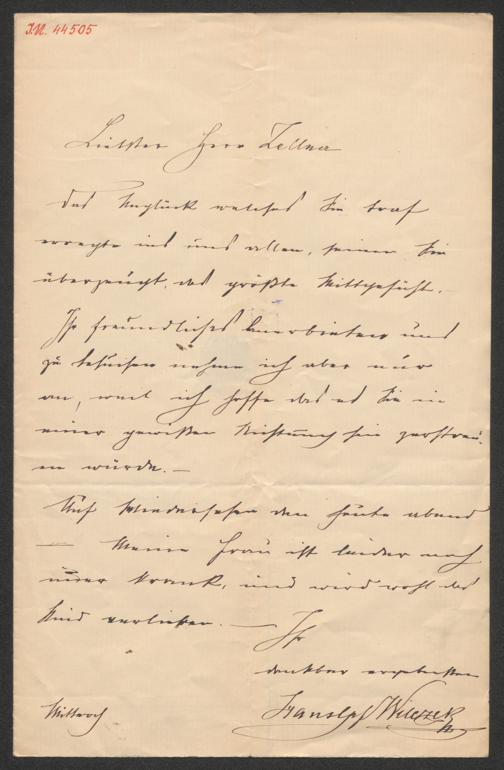 I.N. 44505
Liebster Herr Zellner
das Unglück welches Sie traf
erregte in uns allen, seien Sie
überzeugt, das größte Mittgefühl.
Ihr freundliches Anerbieten uns
zu besuchen nehme ich aber nur
an, weil ich hoffe das es Sie in
einer gewißen Richtung hin zerstreu-
en würde. —
Auf Wiedersehen den heute abend
— Meine Frau ist leider noch
krank, und wird wohl das
Kind verlieren. —
Ihr
dankbar ergebenster
Hans Wilczek
Mittwoch